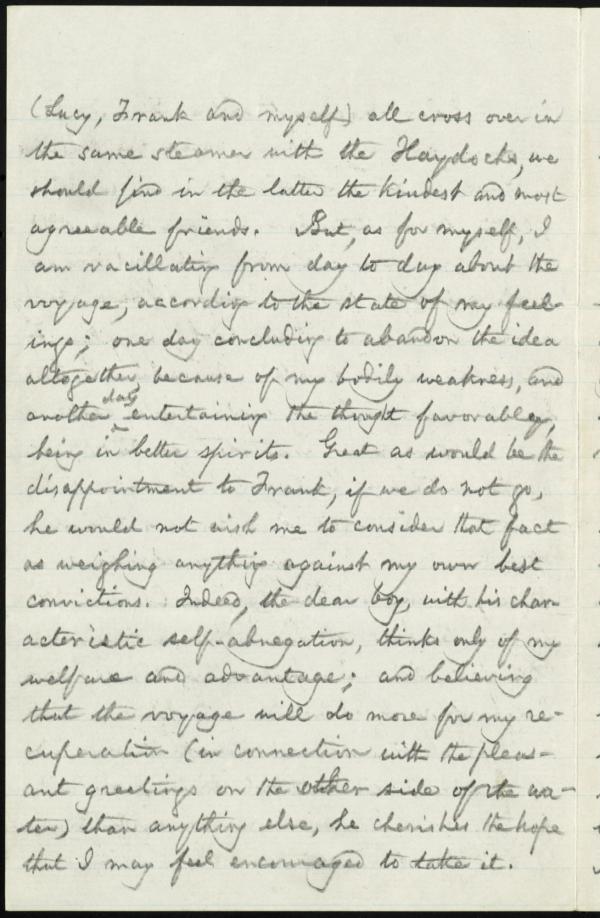 (Lucy, Frank and myself) all cross over in
the same steamer with the Haydocks, we
should find in the latter the kindest and most
agreeable friends. But, as for myself, I
am vacillating from day to day about the
voyage, according to the state of my feel-
ings; one day concluding to abandon the idea
altogether, because of my bodily weakness, and
another day entertaining the thought favorably,
being in better spirits. Great as would be the
disappointment to Frank, if we do not go,
he would not wish me to consider that fact
as weighing anything against my own best
convictions. Indeed, the dear boy, with his char-
acteristic self-abnegation, thinks only of my
welfare and advantage; and believing
that the voyage will do more for my re-
cuperation (in connection with the pleas-
ant greetings on the other side of the wa-
ter) than anything else, he cherishes the hope
that I may feel encouraged to take it.